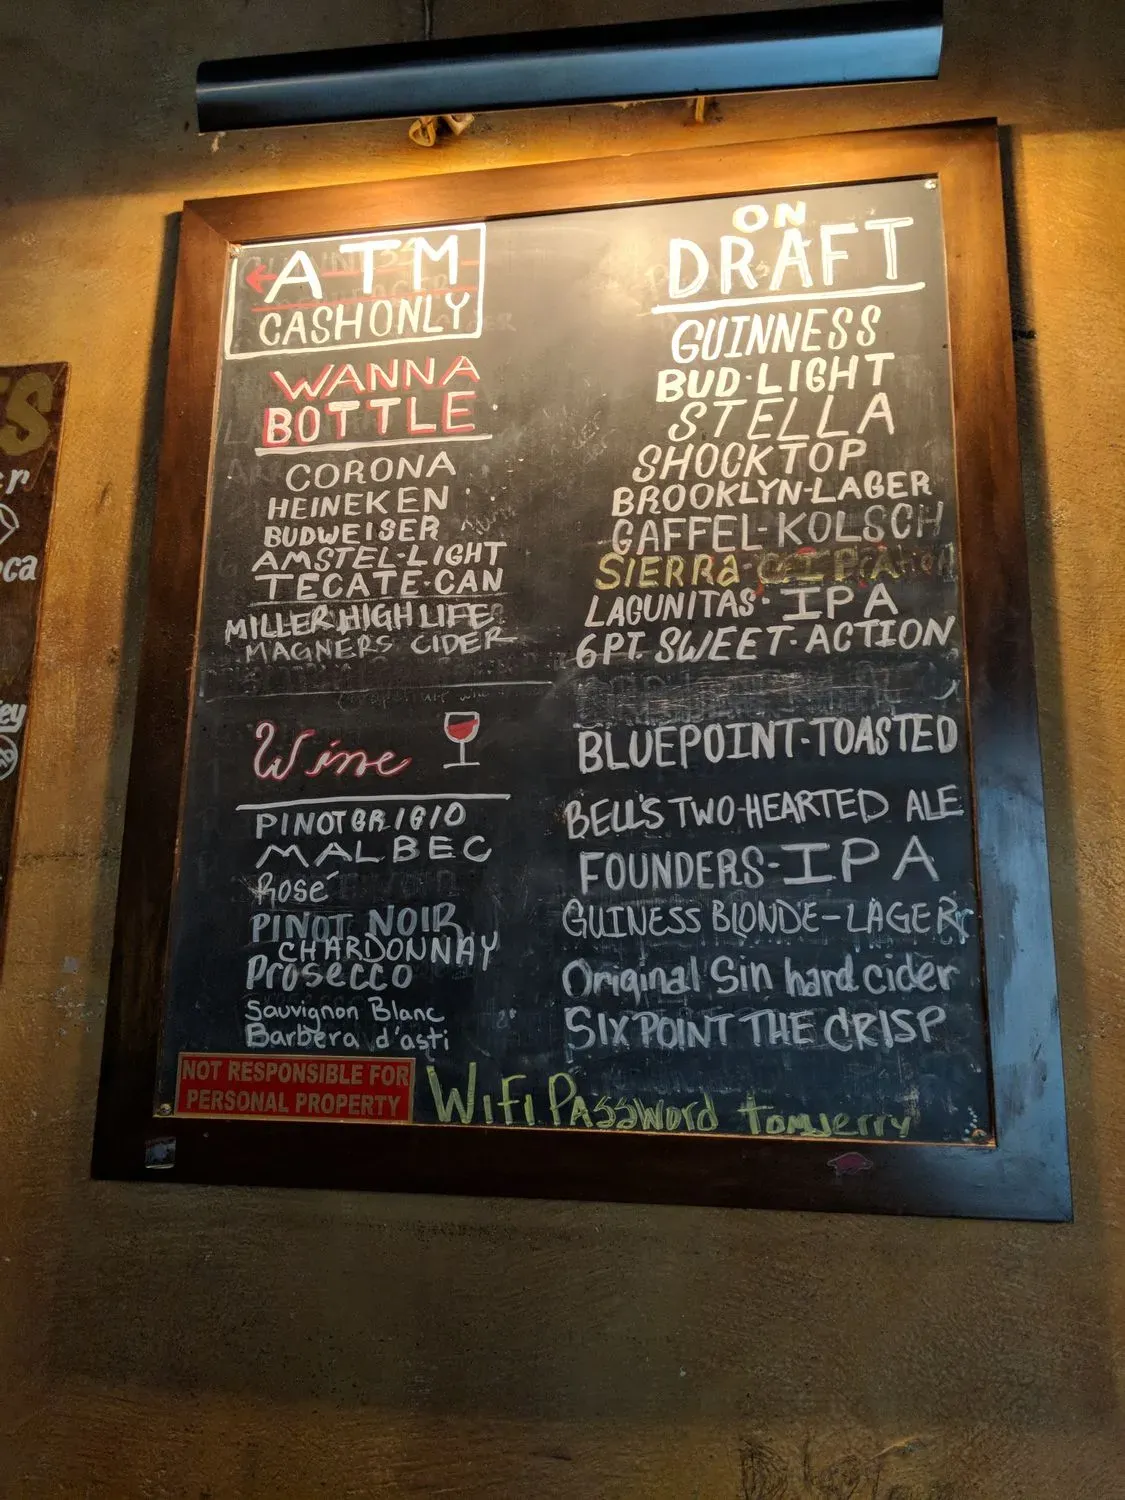 ATM
CASH ONLY
WANNA
BOTTLE
CORONA
HEINEKEN
BUDWEISER
AMSTEL-LIGHT
TECATE-CAN
MILLER HIGH LIFE
MAGNERS CIDER
Wine
PINOT GRIGIO
MALBEC
Rosé
PINOT NOIR
CHARDONNAY
Prosecco
Sauvignon Blanc
Barbera d'asti
NOT RESPONSIBLE FOR
PERSONAL PROPERTY
ON
DRAFT
GUINNESS
BUD-LIGHT
STELLA
SHOCKTOP
BROOKLYN-LAGER
GAFFEL-KOLSCH
SIERRa-
LAGUNITAS· IPA
6PT. SWEET-ACTION
BLUEPOINT-TOASTED
BELL'S TWO-HEARTED ALE
FOUNDERS-IPA
GUINESS BLONDE-LAGER
Original Sin hard cider
SIXPOINT THE CRISP
WiFi PASSWord tomjerry